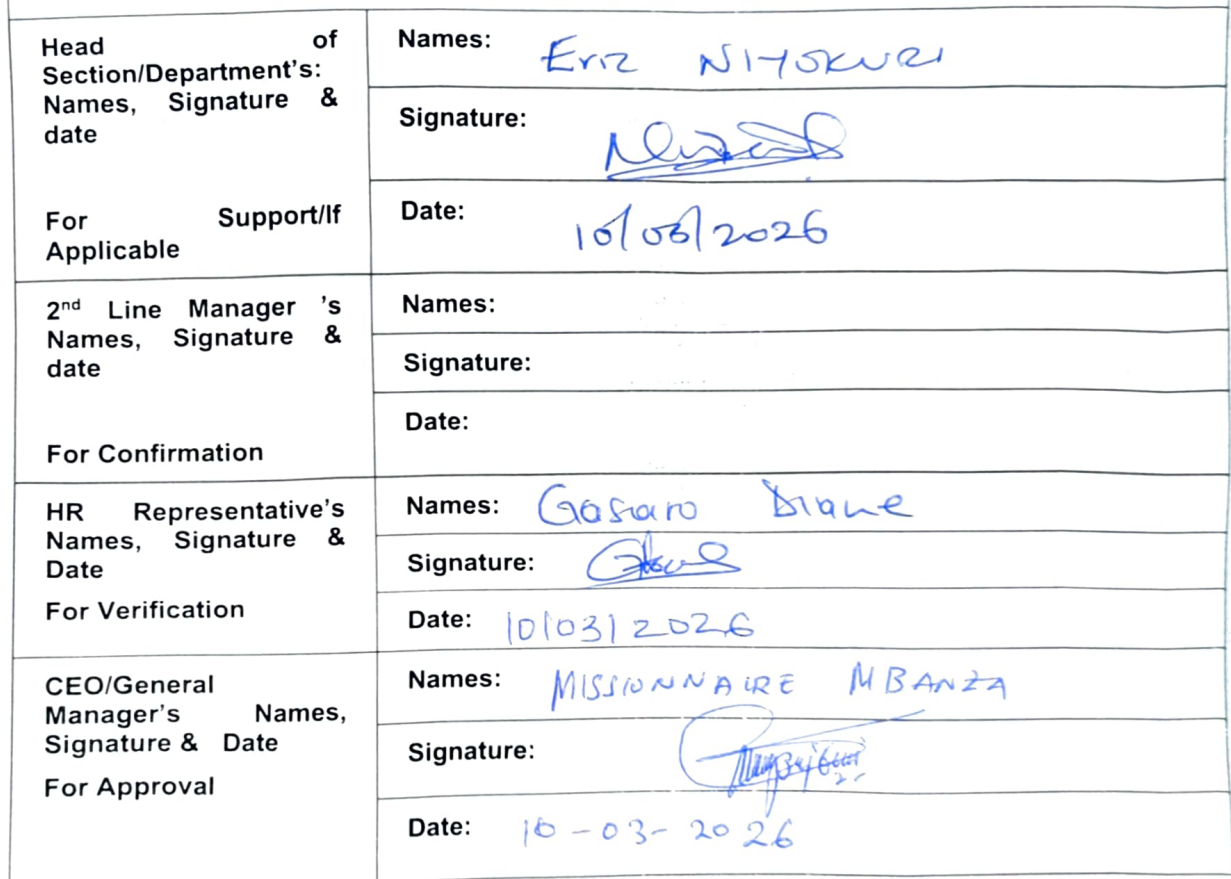 Head of
Section/Department's:
Names, Signature &
date
For Support/If
Applicable
Names: Eric NIYOKURI
Signature:
Date: 10/03/2026
2nd Line Manager 's
Names, Signature &
date
For Confirmation
Names:
Signature:
Date:
HR Representative's
Names, Signature &
Date
For Verification
Names: Gasaro Diane
Signature:
Date: 10/03/2026
CEO/General
Manager's Names,
Signature & Date
For Approval
Names: MISSIONNAIRE MBANZA
Signature:
Date: 10-03-2026